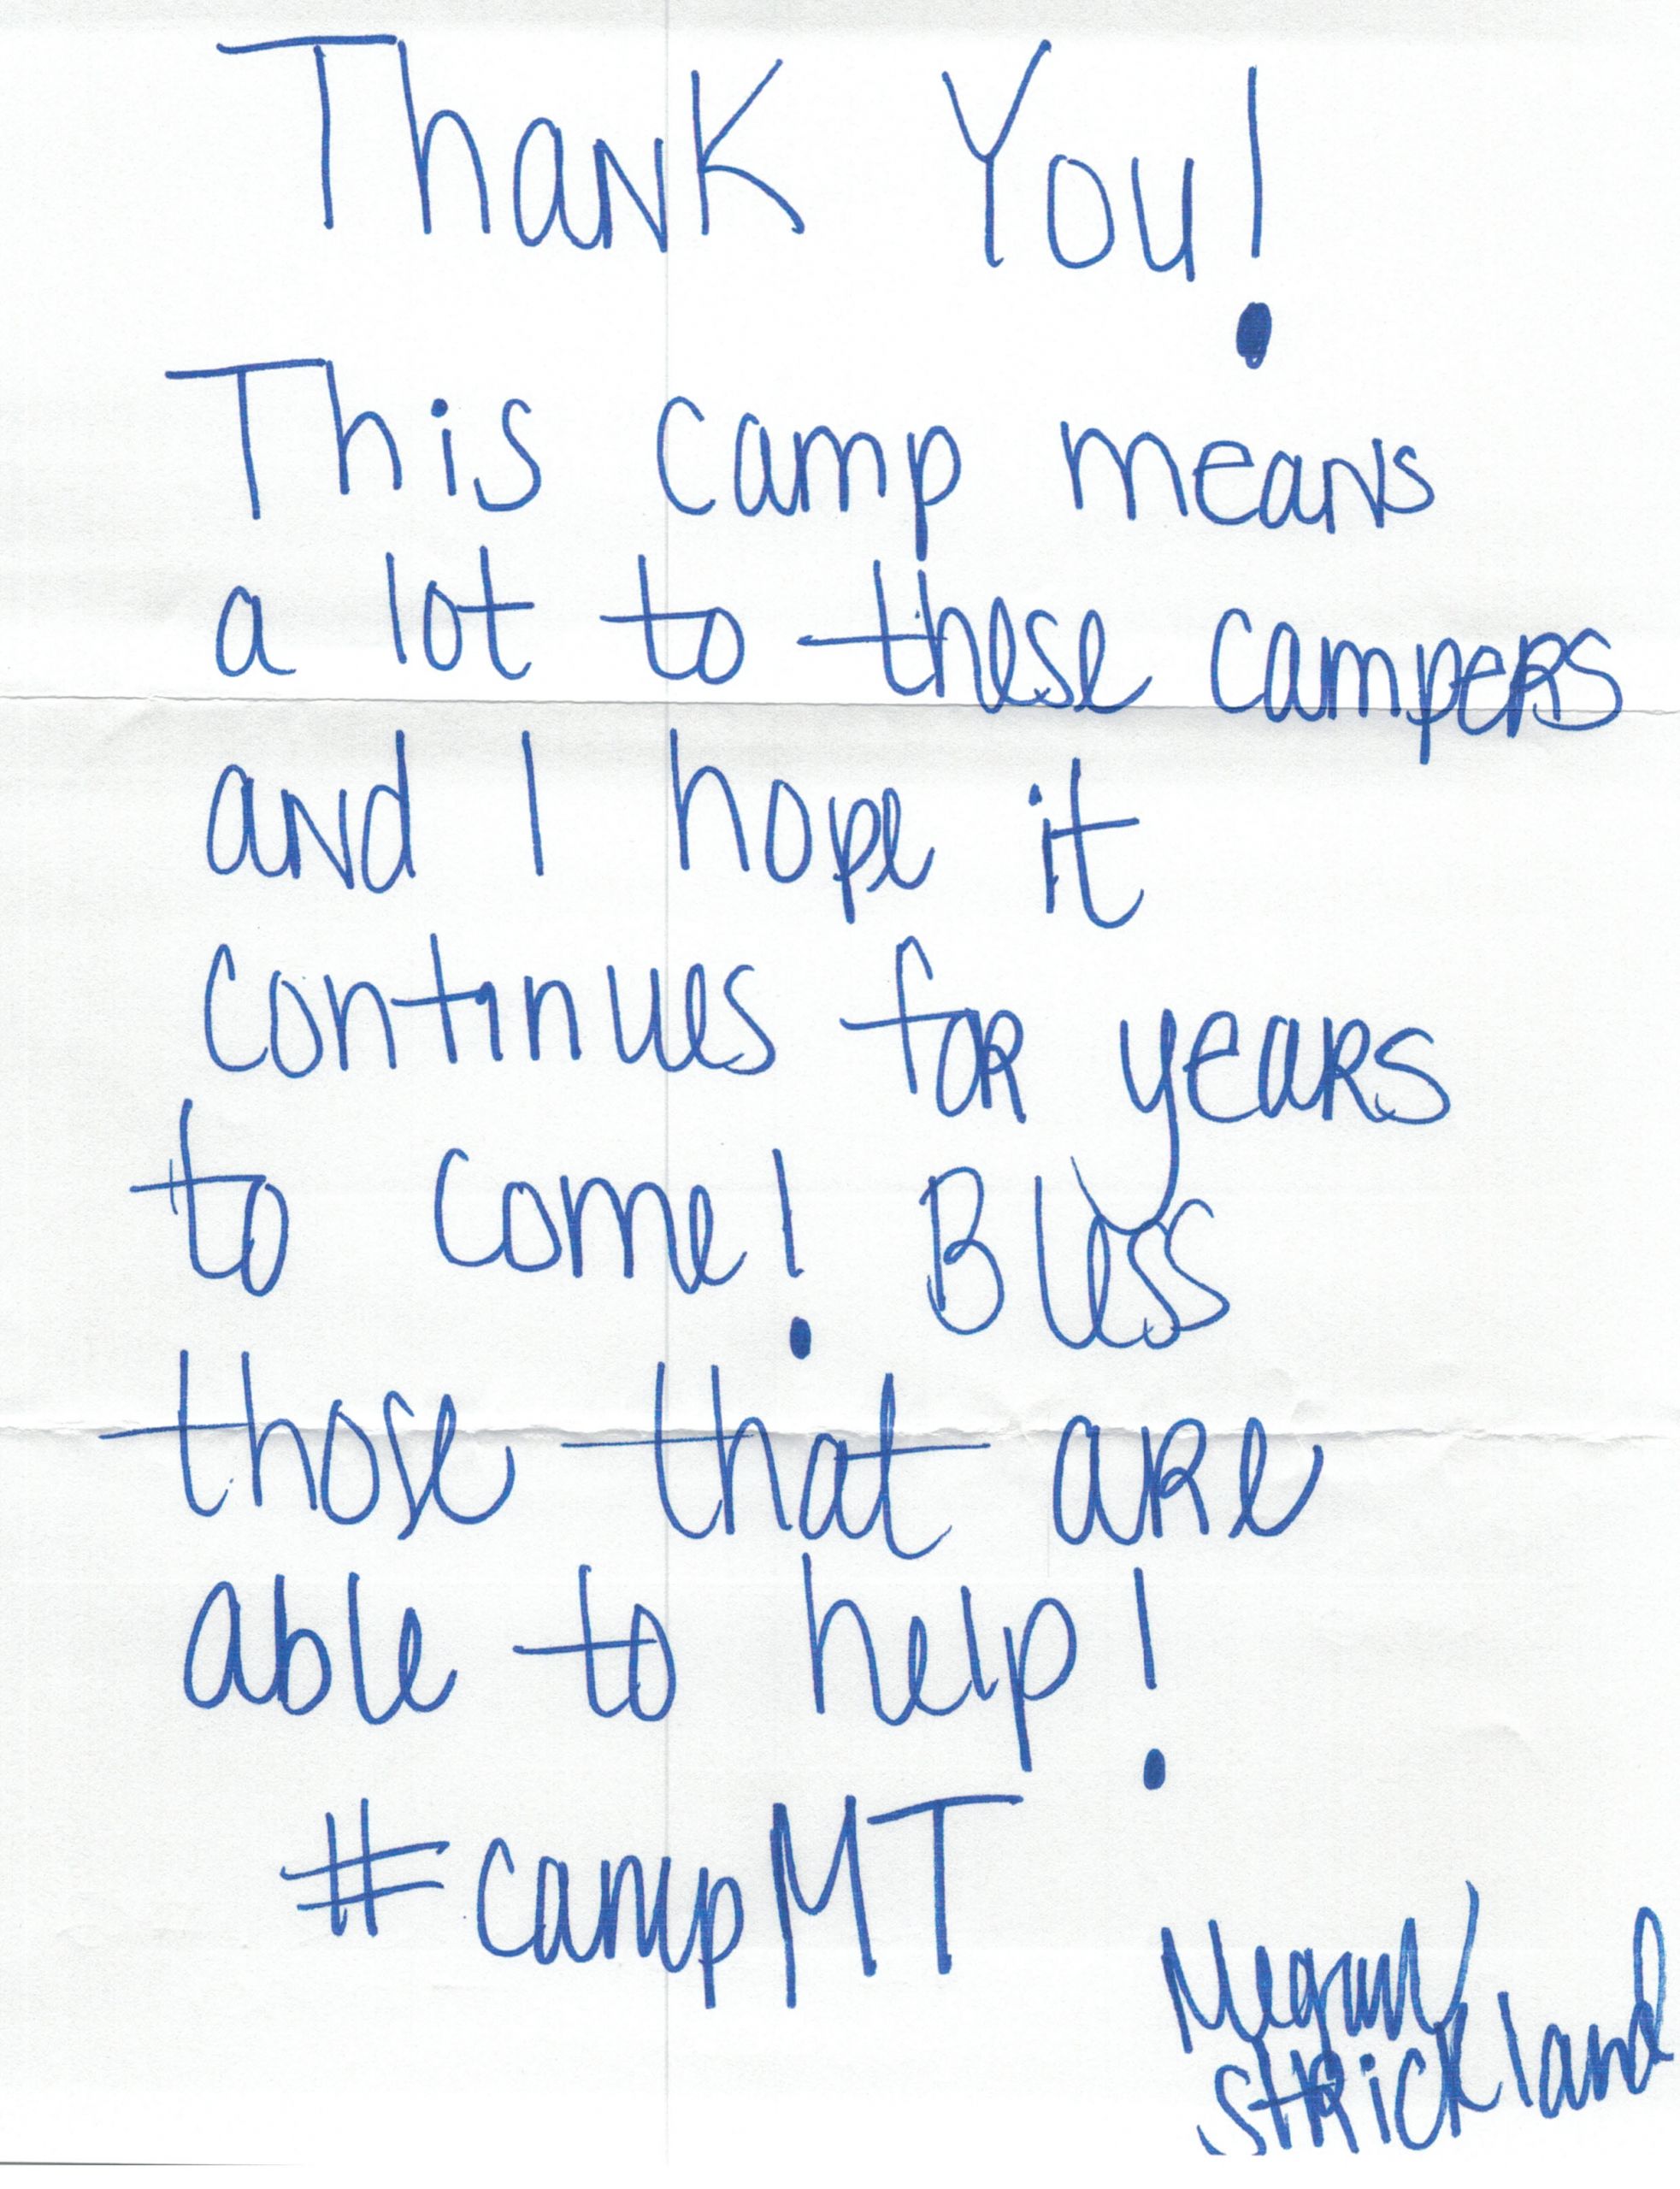 Thank You!
This camp means
a lot to these campers
and I hope it
continues for years
to come! Bless
those that are
able to help!
#campMT
Megan
Strickland